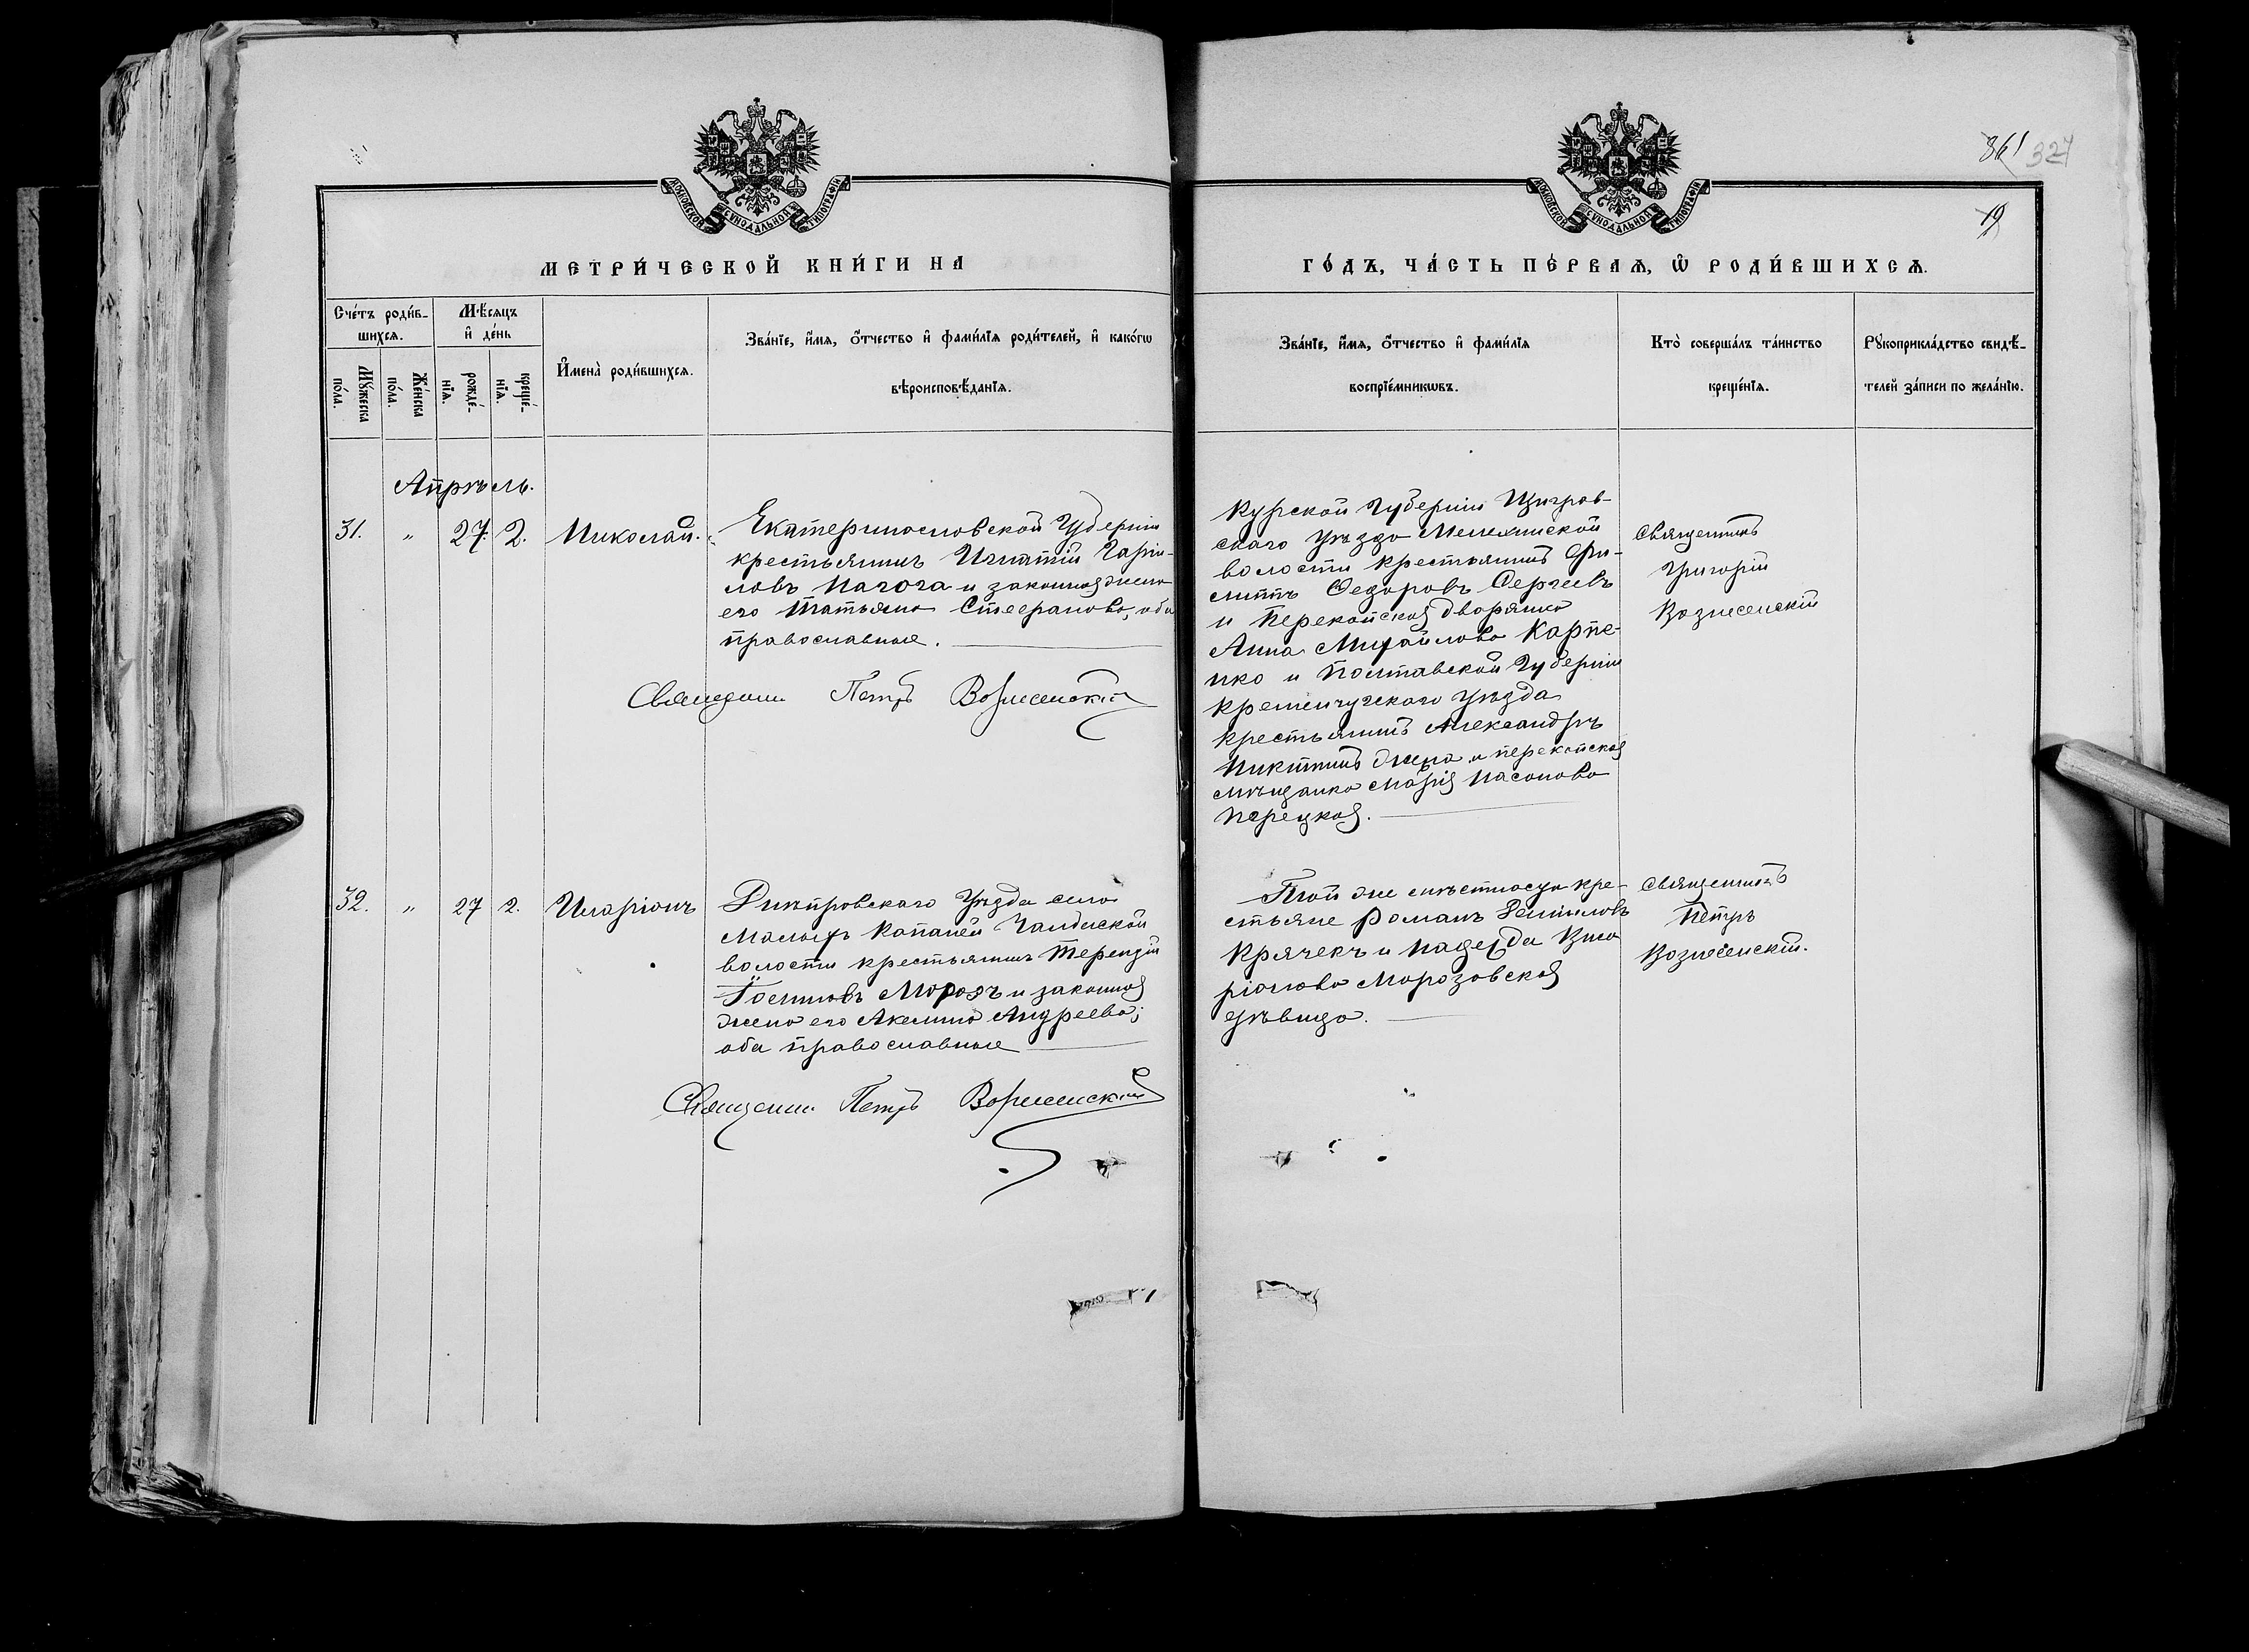 861 327
19
МОСКОВСКОЙ СѴНОДАЛЬНОЙ ТИПОГРАФІИ
МОСКОВСКОЙ СѴНОДАЛЬНОЙ ТИПОГРАФІИ
МЕТРИ́ЧЕСКОЙ КНИ́ГИ НА
ГО́ДЪ, ЧА́СТЬ ПЕ́РВАѦ, Ѿ РОДИ́ВШИХСѦ.
Сче́тъ роди́в-
шихсѧ.
Мꙋ́жеска
по́ла.
Же́нска
по́ла.
Мѣ́сѧцъ
и҆ де́нь
рожде́-
нїѧ.
креще́-
нїѧ.
И҆мена̀ роди́вшихсѧ.
Зва́нїе, и҆́мѧ, ѻ҆́тчество и҆ фами́лїѧ роди́телей, и҆ како́гѡ
вѣроисповѣ́данїѧ.
Зва́нїе, и҆́мѧ, ѻ҆́тчество и҆ фами́лїѧ
воспрїе́мникѡвъ.
Кто̀ соверша́лъ та́инство
креще́нїѧ.
Рꙋкоприкла́дство свидѣ́-
телей за́писи по жела́нїю.
Апрѣль.
31. " 27. 2. Николай.
Екатеринославской Губерніи
крестьянинъ Игнатій Гаври-
ловъ Нагога и законная жена
его Татьяна Стефанова, оба
православные.
Священни Петръ Вознесенскій
Курской Губерніи Щигров-
скаго Уѣзда
волости крестьянинъ Фи-
липпъ Федоровъ Сергеевъ
и Перекопская дворянка
Анна Михайлова Карпе-
нко и Полтавской Губерніи
Кременчугскаго Уѣзда
крестьянинъ Александръ
Никитинъ и перекопская
мѣщанка Марія
Перецкая.
Священникъ
Григорій
Вознесенскій
32. " 27 2. Иларіонъ
Днѣпровскаго Уѣзда села
Малыхъ Копаней Чалбаской
волости крестьянинъ Терентій
Іосифовъ Морозъ и законная
жена его Акелина Андреева;
оба православные
Священни Петръ Вознесенскій
Той же мѣстности кре-
стьяне Романъ
Крячекъ и Надежда Ила
ріонова Морозовская
дѣвица.
Священникъ
Петръ
Вознесенскій.